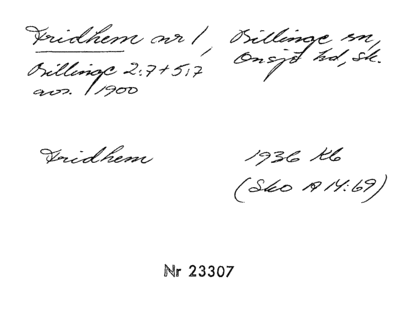 Fridhem nr 1, Billinge sn,
Onsjö hd, sk.
Billinge 2:7+5:7
avs. 1900
Fridhem 1936 Kb
(Sko A 14:69)
Nr 23307